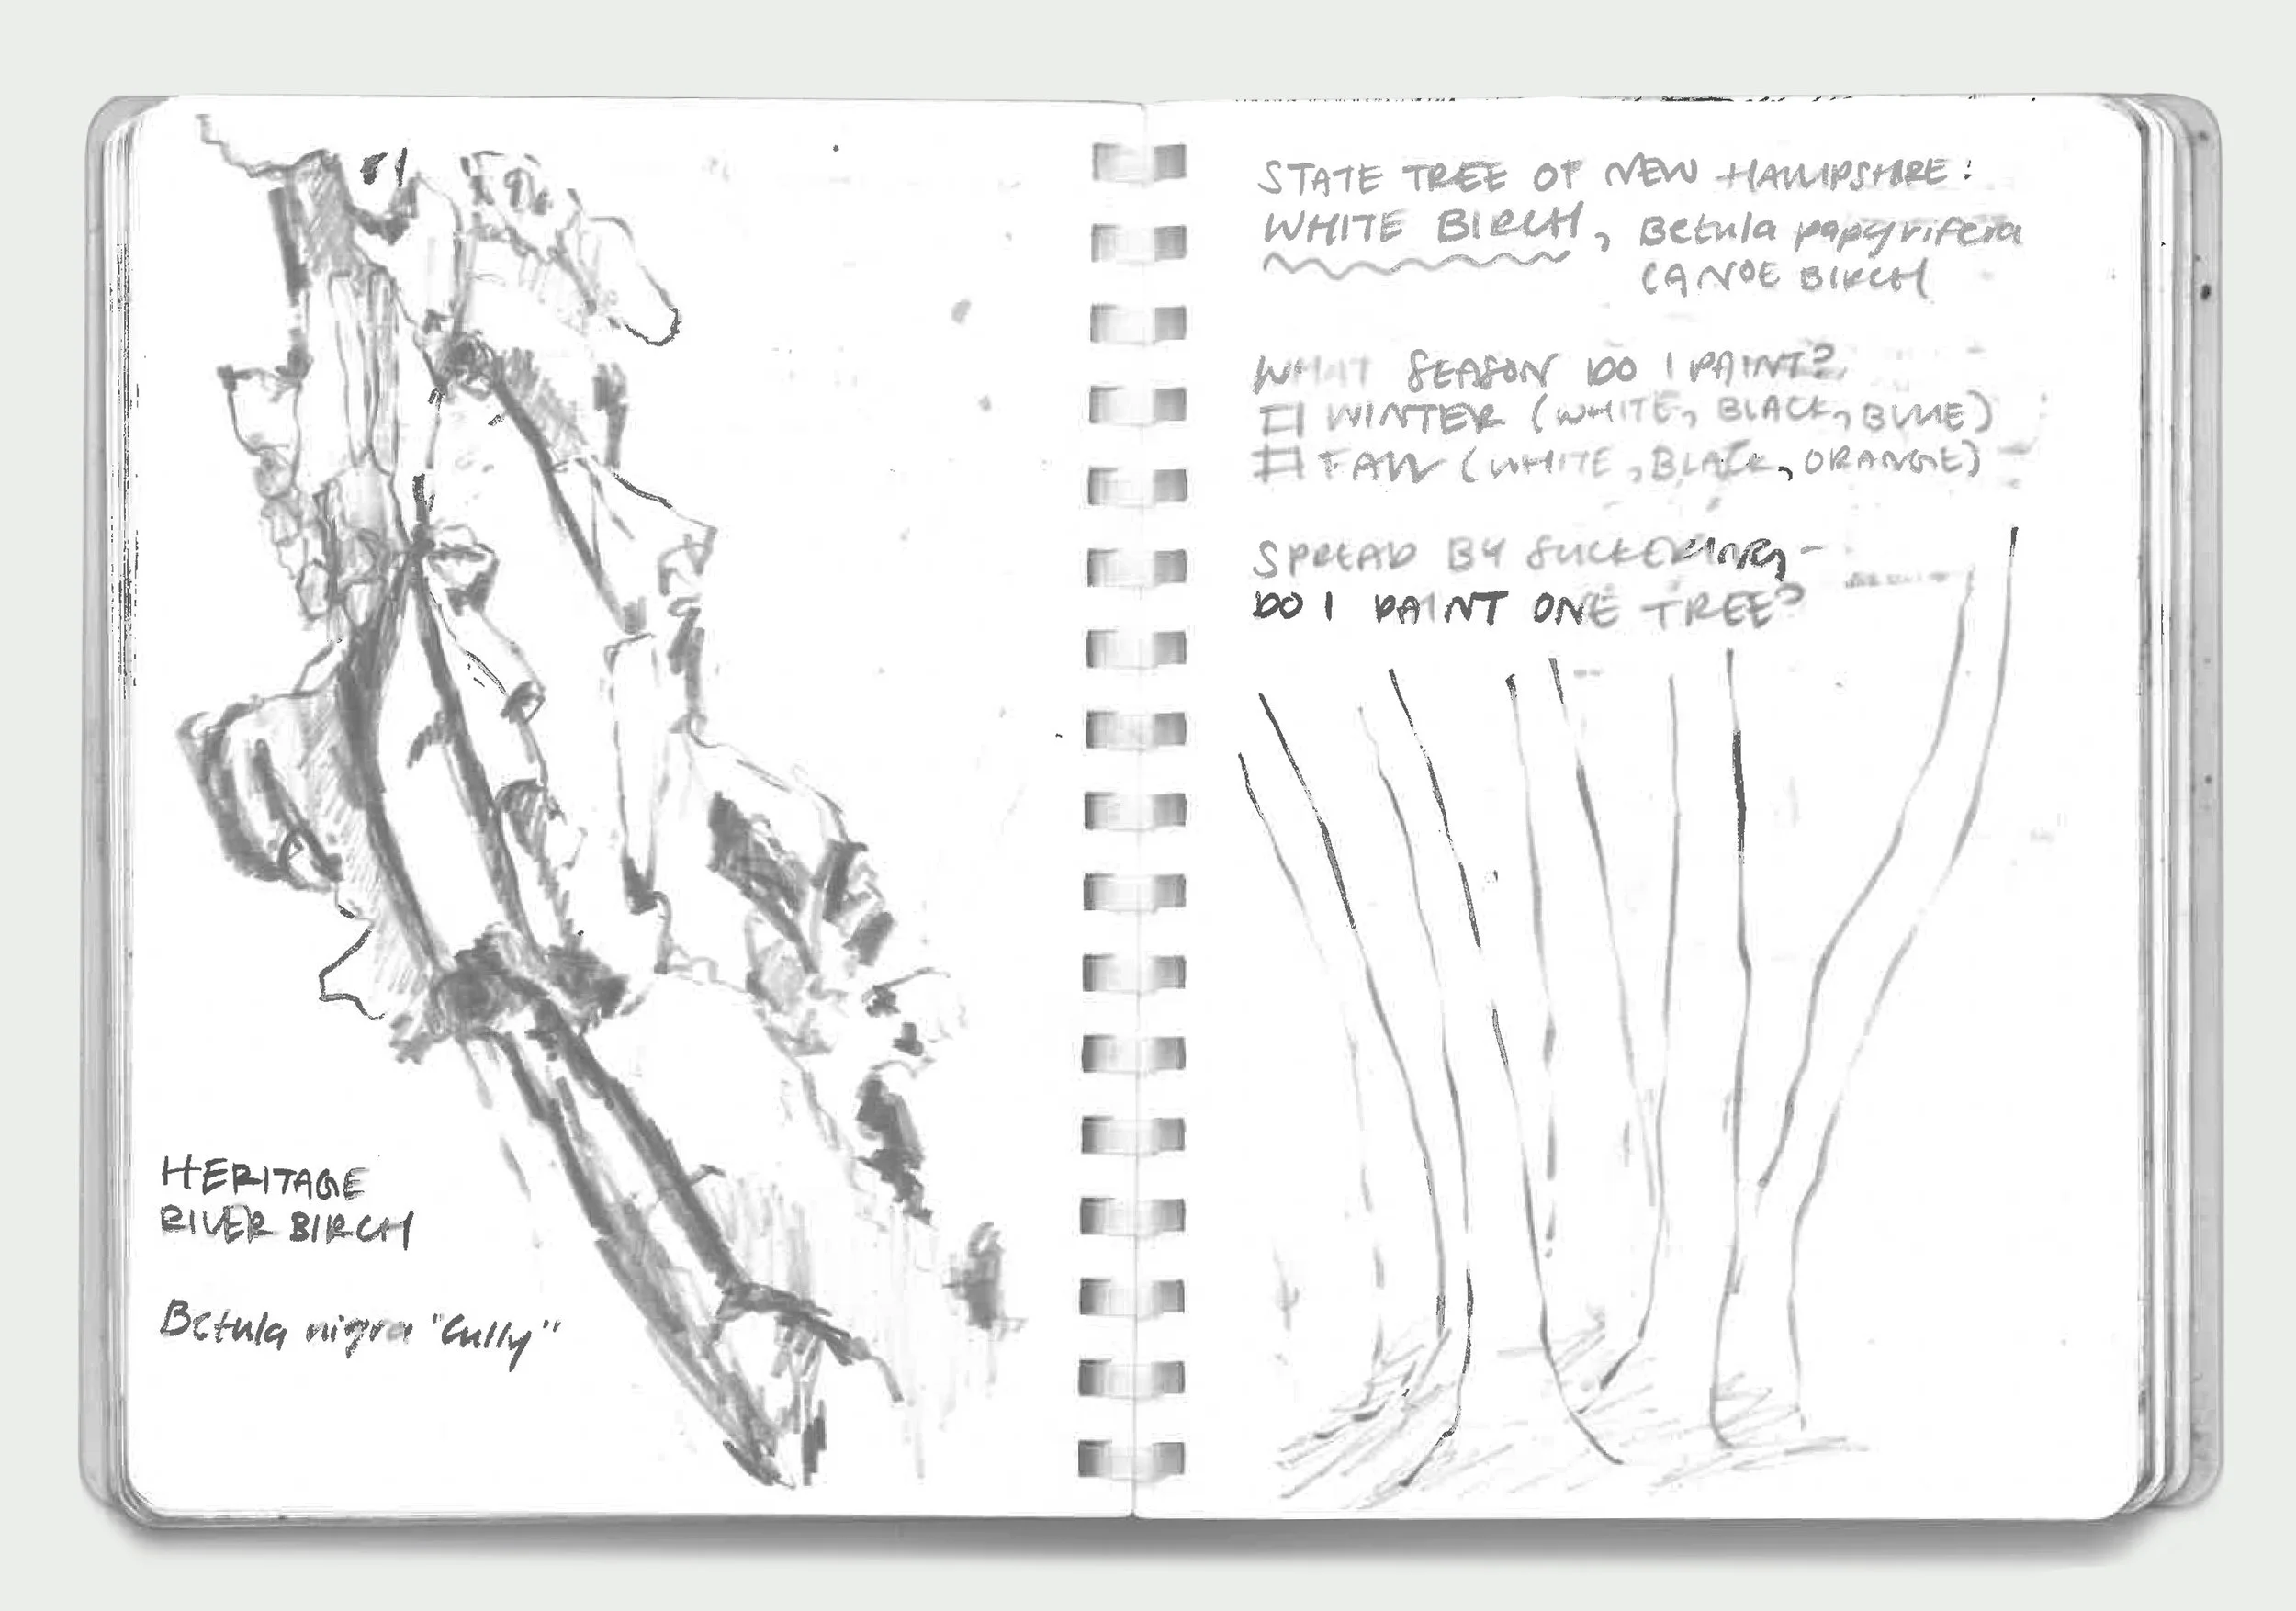 HERITAGE
RIVER BIRCH
Betula nigra "Cully"
STATE TREE OF NEW HAMPSHIRE:
WHITE BIRCH, Betula papyrifera
CANOE BIRCH
WHAT SEASON DO I PAINT?
WINTER (WHITE, BLACK, BLUE)
FALL (WHITE, BLACK, ORANGE)
SPREAD BY SUCKERING -
DO I PAINT ONE TREE?